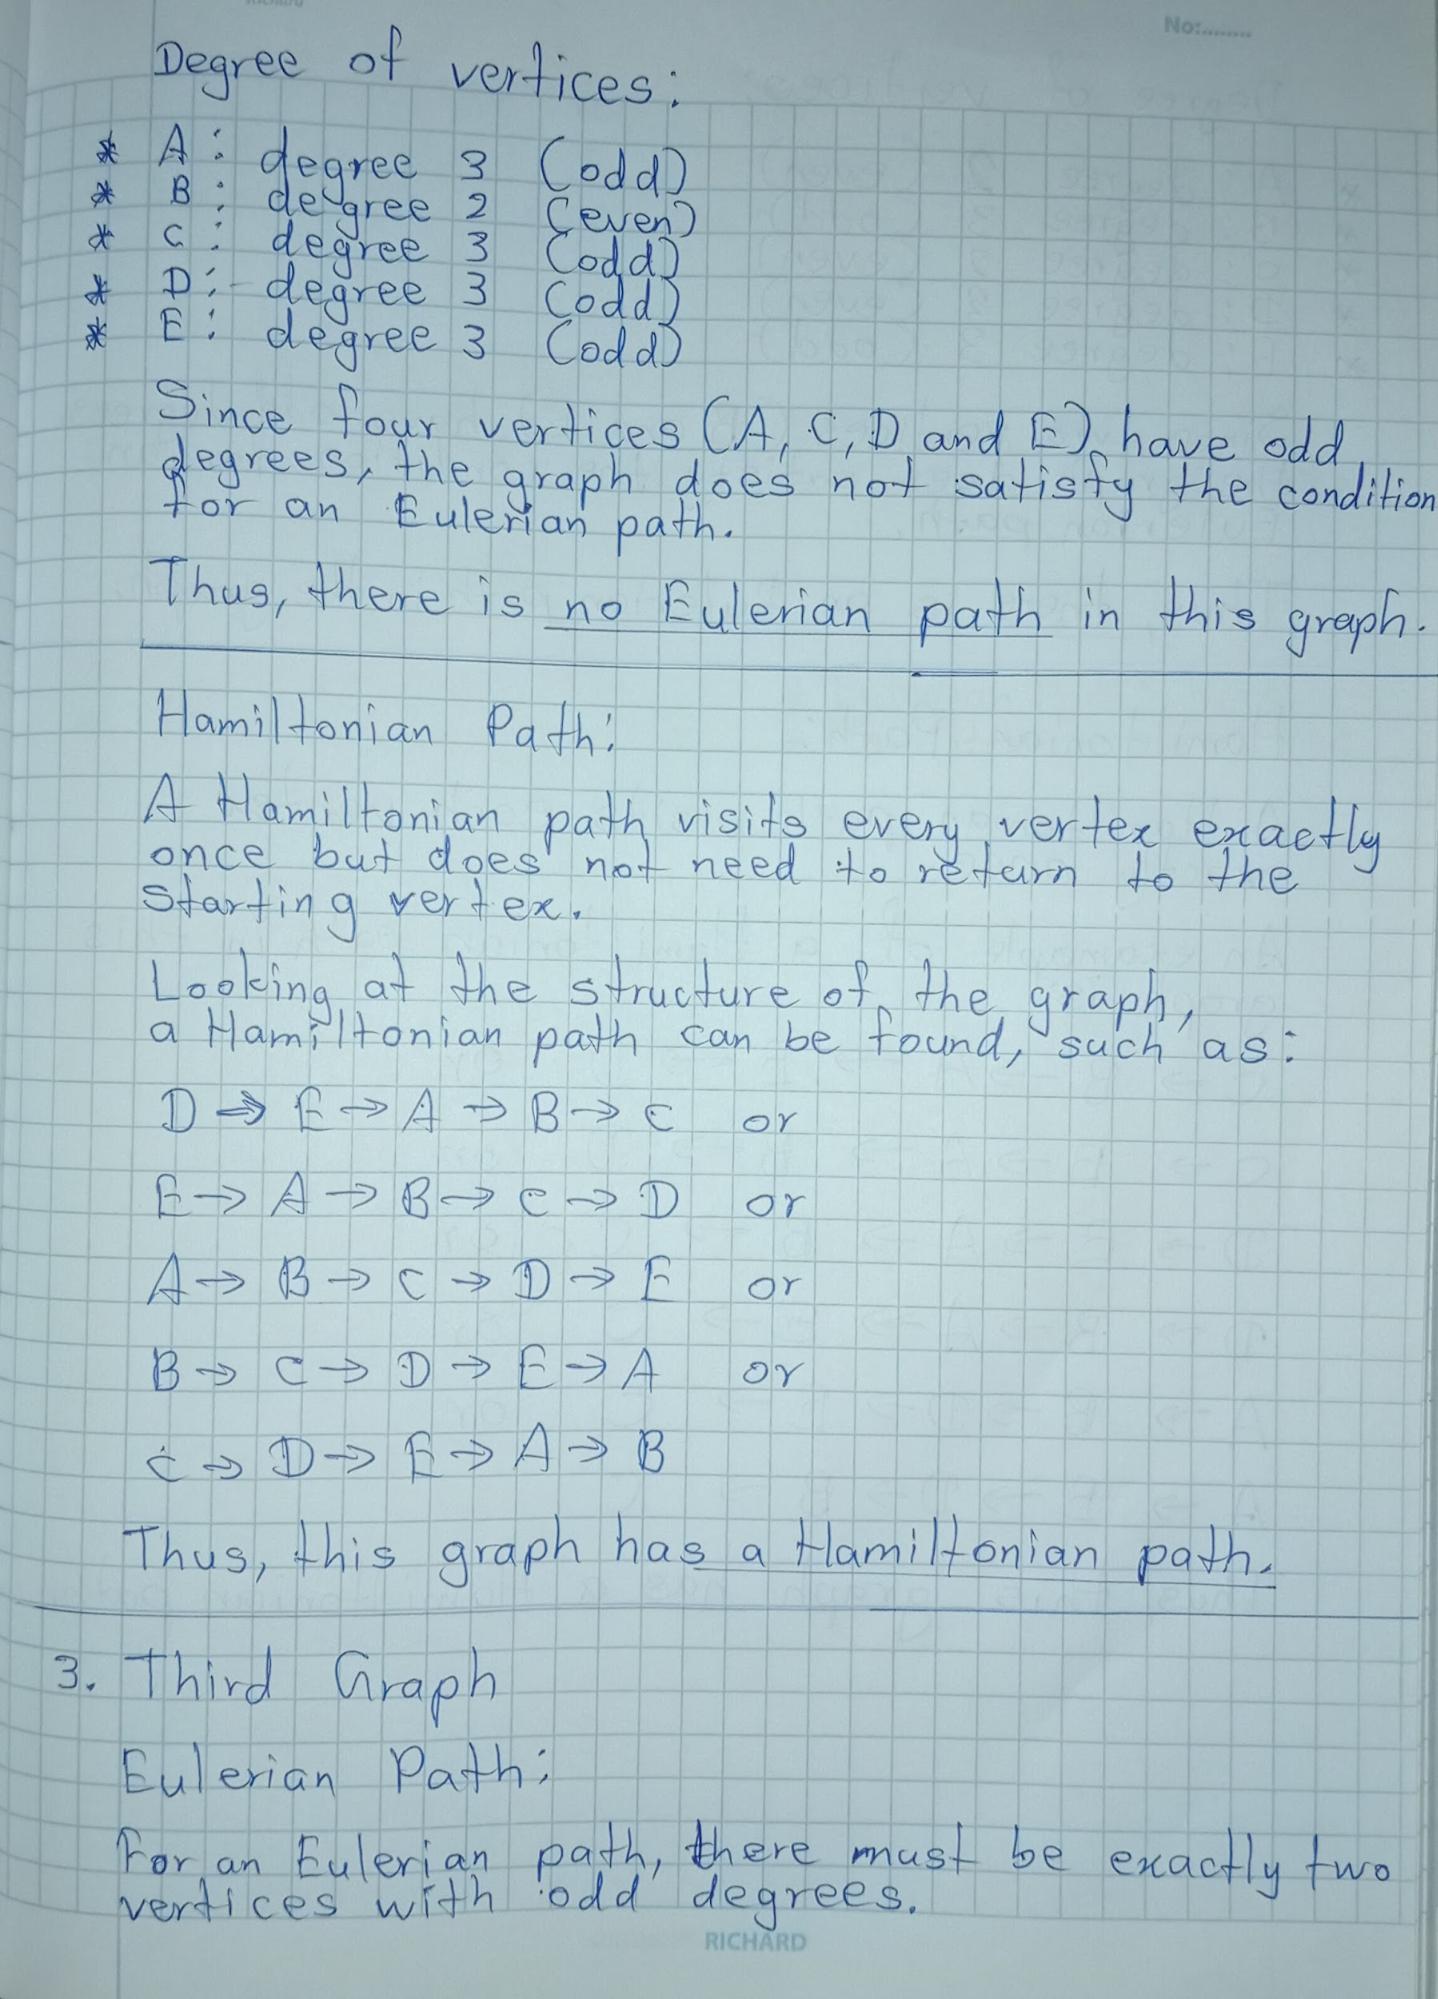 No:........
Degree of vertices:
* A: degree 3 (odd)
* B: degree 2 (even)
* C: degree 3 (odd)
* D: degree 3 (odd)
* E: degree 3 (odd)
Since four vertices (A, C, D and E) have odd
degrees, the graph does not satisfy the condition
for an Eulerian path.
Thus, there is no Eulerian path in this graph.
Hamiltonian Path:
A Hamiltonian path visits every vertex exactly
once but does not need to return to the
starting vertex.
Looking at the structure of the graph,
a Hamiltonian path can be found, such as:
D → E → A → B → C or
E → A → B → C → D or
A → B → C → D → E or
B → C → D → E → A or
C → D → E → A → B
Thus, this graph has a Hamiltonian path.
3. Third Graph
Eulerian Path:
For an Eulerian path, there must be exactly two
vertices with odd degrees.
RICHARD